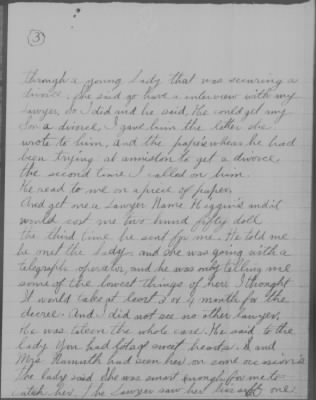 3
through a young lady that was securing a
divorce. She said go have a interview with my
lawyer, So I did and he said He could get my
Son a divorce, I gave him the letter she
wrote to him, and the papers whear he had
been trying at anniston to get a divorce
the second time I called on him.
He read to me on a piece of paper,
And get me a Lawyer Name Higgins and it
would cost me two hund fifty doll
the third time he sent for me. He told me
he met the Lady, and she was going with a
telegraph operator, and he was only telling me
some of the lowest things of her I thought
It would take at least 3 or 4 month for the
decree. And I did not see no other Lawyer.
He was the whole case. He said to the
lady You had lots of sweet hearts. & and
Mrs had seen her on some occasions
the lady said She was smart enough for me to
catch her. The Lawyer saw her one